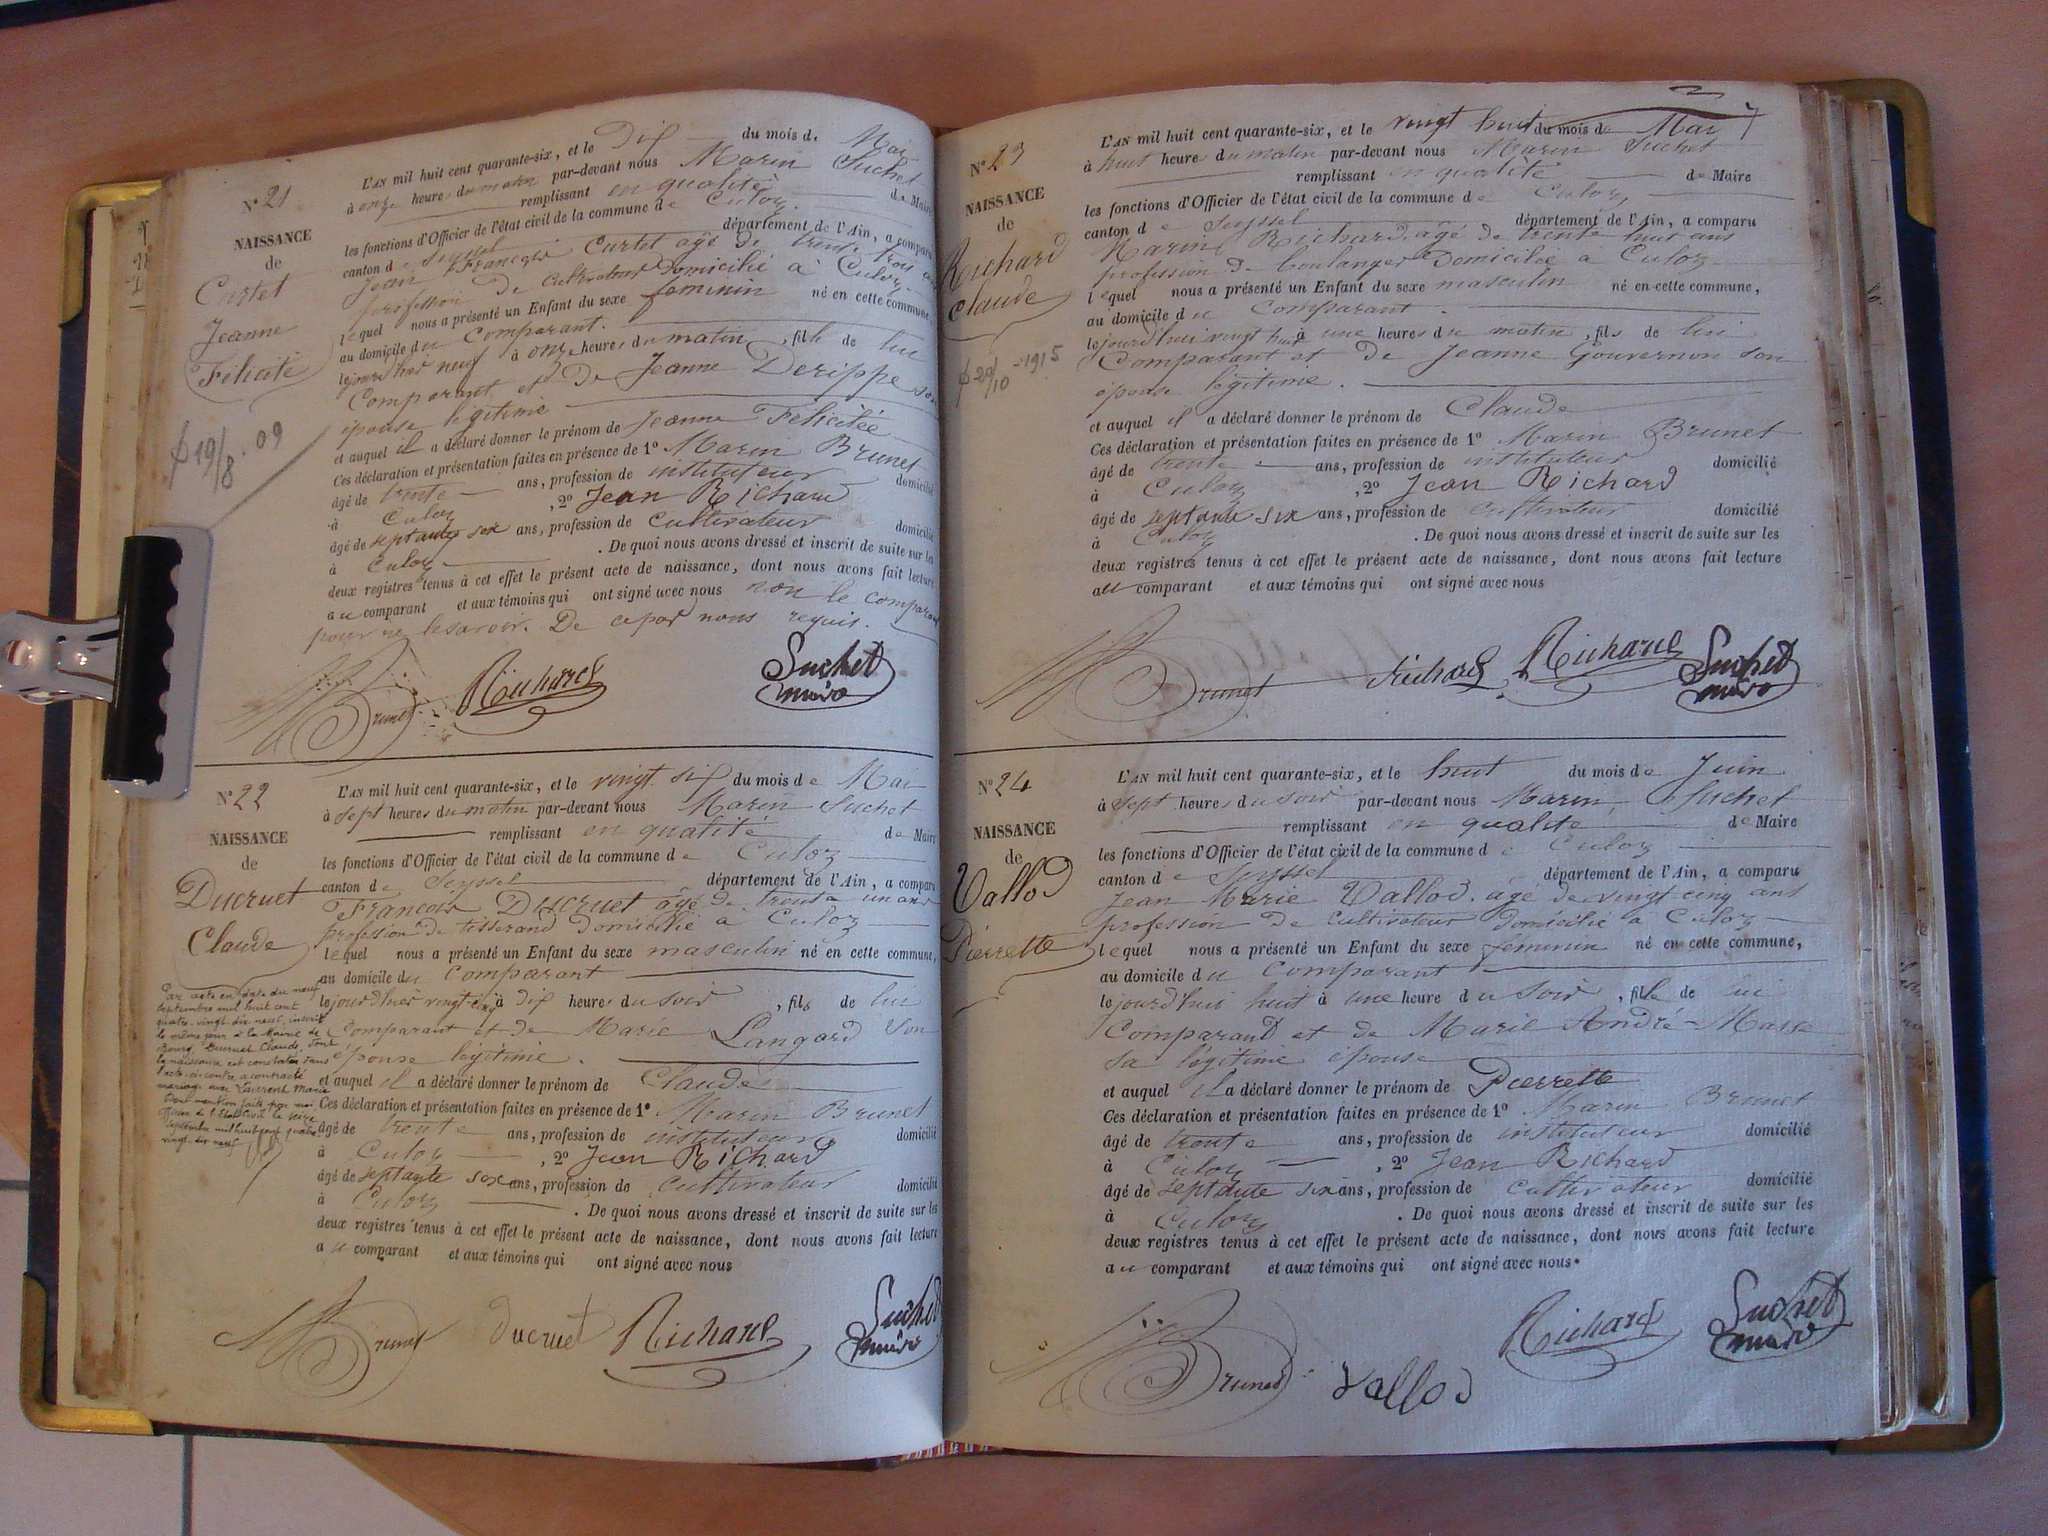 N° 21
NAISSANCE
de
Curtet
Jeanne
Félicité
19/8 . 09
L'AN mil huit cent quarante-six, et le Dix du mois de Mai
à onze heures du matin par-devant nous Marin Suchet
remplissant en qualité de Maire
les fonctions d'Officier de l'état civil de la commune de Culoz
canton de Seyssel département de l'Ain, a comparu
Jean François Curtet âgé de trente trois ans
profession de cultivateur domicilié à Culoz
lequel nous a présenté un Enfant du sexe feminin né en cette commune,
au domicile du Comparant.
le jour d'hier neuf à onze heures du matin, fille de lui
Comparant et de Jeanne Derippe son
épouse légitime
et auquel il a déclaré donner le prénom de Jeanne Félicitée
Ces déclaration et présentation faites en présence de 1° Marin Brunet
âgé de trente ans, profession de instituteur domicilié
à Culoz, 2° Jean Richard
âgé de septante six ans, profession de cultivateur domicilié
à Culoz. De quoi nous avons dressé et inscrit de suite sur les
deux registres tenus à cet effet le présent acte de naissance, dont nous avons fait lecture
au comparant et aux témoins qui ont signé avec nous non le comparant
pour ne le savoir. De ce par nous requis.
Brunet Richard Suchet
maire
N° 22
NAISSANCE
de
Ducruet
Claude
Par acte en date du neuf
Septembre mil huit cent
quatre-vingt-dix neuf, inscrit
le même jour à la Mairie de
Bourg, Ducruet Claude, dont
la naissance est constatée dans
l'acte ci-contre a contracté
mariage avec Laurent Marie
Dont mention faite par moi
Officier de l'Etat Civil le seize
Septembre mil huit cent quatre
vingt-dix neuf
L'AN mil huit cent quarante-six, et le vingt six du mois de Mai
à sept heures du matin par-devant nous Marin Suchet
remplissant en qualité de Maire
les fonctions d'Officier de l'état civil de la commune de Culoz
canton de Seyssel département de l'Ain, a comparu
François Ducruet âgé de trente un ans
profession de tisserand domicilié à Culoz
lequel nous a présenté un Enfant du sexe masculin né en cette commune,
au domicile du Comparant
le jour d'hier vingt cinq à dix heures du soir, fils de lui
Comparant et de Marie Langard son
épouse légitime.
et auquel il a déclaré donner le prénom de Claude
Ces déclaration et présentation faites en présence de 1° Marin Brunet
âgé de trente ans, profession de instituteur domicilié
à Culoz, 2° Jean Richard
âgé de septante six ans, profession de cultivateur domicilié
à Culoz. De quoi nous avons dressé et inscrit de suite sur les
deux registres tenus à cet effet le présent acte de naissance, dont nous avons fait lecture
au comparant et aux témoins qui ont signé avec nous
Brunet ducruet Richard Suchet
maire
7
N° 23
NAISSANCE
de
Richard
Claude
29/10 - 1915
L'AN mil huit cent quarante-six, et le vingt huit du mois de Mai
à huit heures du matin par-devant nous Marin Suchet
remplissant en qualité de Maire
les fonctions d'Officier de l'état civil de la commune de Culoz
canton de Seyssel département de l'Ain, a comparu
Marin Richard, âgé de trente huit ans
profession de boulanger domicilié à Culoz
lequel nous a présenté un Enfant du sexe masculin né en cette commune,
au domicile du Comparant.
le jourd'hui vingt huit à une heures du matin, fils de lui
Comparant et de Jeanne Gouvernon son
épouse légitime.
et auquel il a déclaré donner le prénom de Claude
Ces déclaration et présentation faites en présence de 1° Marin Brunet
âgé de trente ans, profession de instituteur domicilié
à Culoz, 2° Jean Richard
âgé de septante six ans, profession de cultivateur domicilié
à Culoz. De quoi nous avons dressé et inscrit de suite sur les
deux registres tenus à cet effet le présent acte de naissance, dont nous avons fait lecture
au comparant et aux témoins qui ont signé avec nous
Brunet Richard Richard Suchet
maire
N° 24
NAISSANCE
de
Vallod
Pierrette
L'AN mil huit cent quarante-six, et le huit du mois de Juin
à sept heures du soir par-devant nous Marin Suchet
remplissant en qualité de Maire
les fonctions d'Officier de l'état civil de la commune de Culoz
canton de Seyssel département de l'Ain, a comparu
Jean Marie Vallod, âgé de vingt cinq ans
profession de cultivateur domicilié à Culoz
lequel nous a présenté un Enfant du sexe féminin né en cette commune,
au domicile du Comparant
le jourd'hui huit à une heure du soir, fille de lui
Comparant et de Marie André-Masse
sa légitime épouse
et auquel il a déclaré donner le prénom de Pierrette
Ces déclaration et présentation faites en présence de 1° Marin Brunet
âgé de trente ans, profession de instituteur domicilié
à Culoz, 2° Jean Richard
âgé de septante six ans, profession de cultivateur domicilié
à Culoz. De quoi nous avons dressé et inscrit de suite sur les
deux registres tenus à cet effet le présent acte de naissance, dont nous avons fait lecture
au comparant et aux témoins qui ont signé avec nous.
Brunet Vallod Richard Suchet
maire